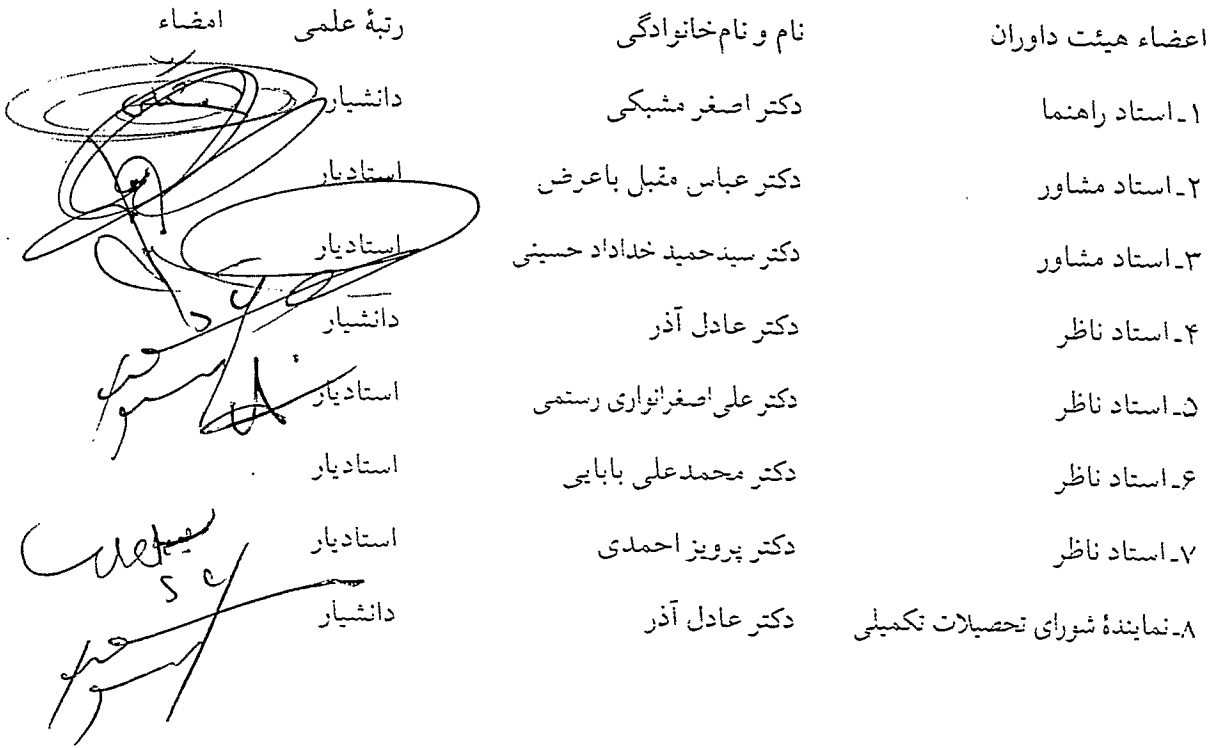 اعضاء هیئت داوران نام و نام‌خانوادگی رتبهٔ علمی امضاء
۱ـ استاد راهنما دکتر اصغر مشبکی دانشیار
۲ـ استاد مشاور دکتر عباس مقبل باعرض استادیار
۳ـ استاد مشاور دکتر سیدحمید خداداد حسینی استادیار
۴ـ استاد ناظر دکتر عادل آذر دانشیار
۵ـ استاد ناظر دکتر علی‌اصغر انواری رستمی استادیار
۶ـ استاد ناظر دکتر محمدعلی بابایی استادیار
۷ـ استاد ناظر دکتر پرویز احمدی استادیار
۸ـ نمایندهٔ شورای تحصیلات تکمیلی دکتر عادل آذر دانشیار